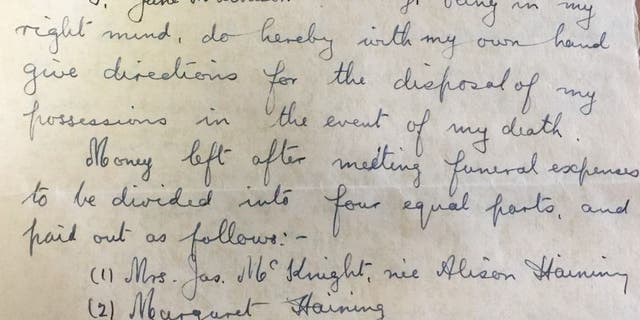 being in my
right mind, do hereby with my own hand
give directions for the disposal of my
possessions in the event of my death.
Money left after meeting funeral expenses
to be divided into four equal parts, and
paid out as follows:-
(1) Mrs. Jas. McKnight, née Alison Haining
(2) Margaret Haining